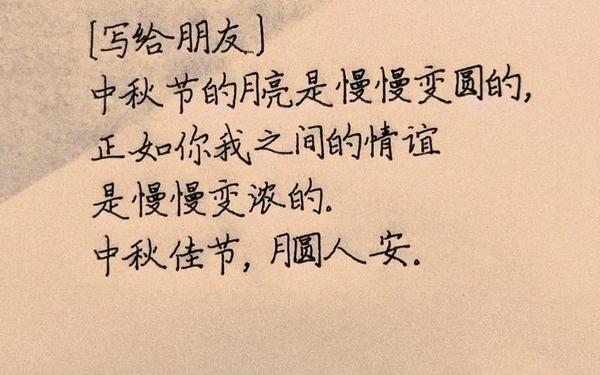 [写给朋友]
中秋节的月亮是慢慢变圆的,
正如你我之间的情谊
是慢慢变浓的。
中秋佳节,月圆人安。